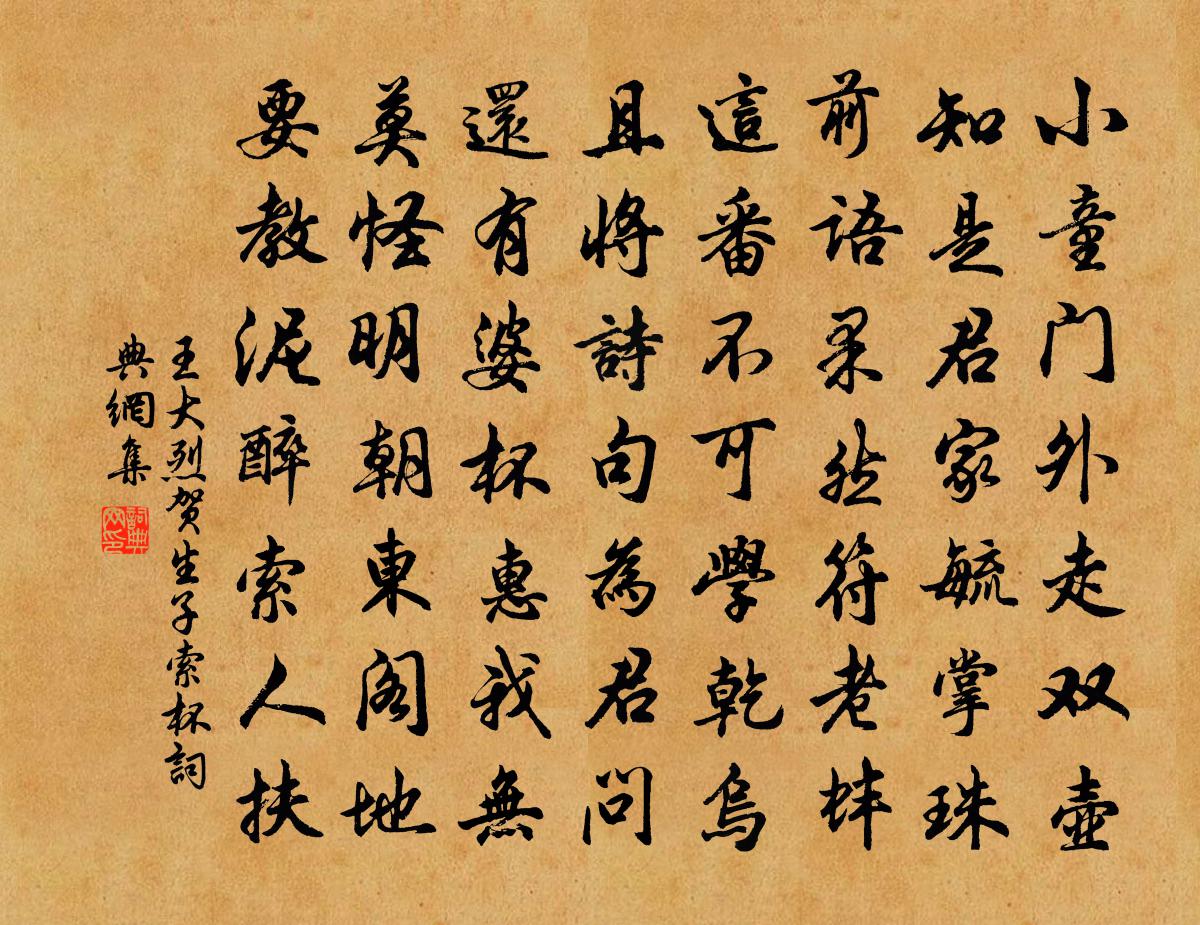 小童门外走双壺
知是君家毓掌珠
前語果然符老蚌
這番不可學乾烏
且將詩句為君問
還有婆杯惠我無
莫怪明朝東阁地
要教泥醉索人扶
王大烈贺生子索杯詞
典網集
詞典网印